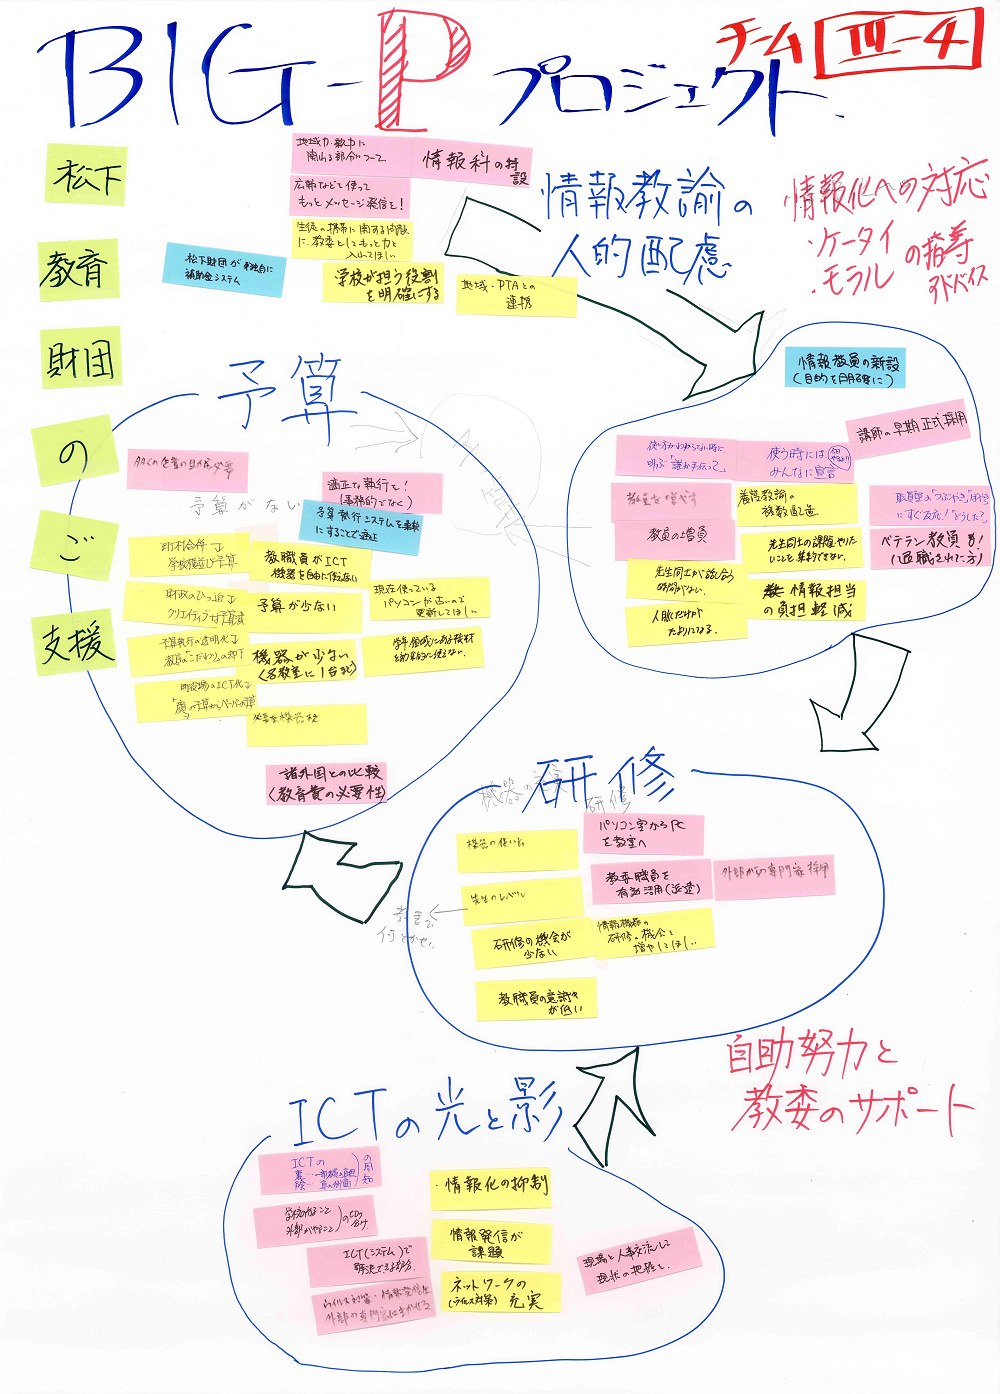 BIG-Pプロジェクト.
チームⅢ-4
松下
教育
財団
の
ご
支援
地域力・教力に
関わる部分について
情報科の特
設
広報などを使って
もっとメッセージ発信を!
生徒の携帯に関する問題
に、教委としてもっと力を
入れてほしい
松下財団が
補助金システム
学校が担う役割
を明確にする
地域・PTAとの
連携
情報教諭の
人的配慮
・情報化への対応
・ケータイ
・モラル
の指導
アドバイス
予算
多くの企業の
予算がない
適正な執行を!
(事務的でなく)
予算執行システムを
にすることで適正
市村合併で
学校
教職員がICT
機器を自由に使えない
財政のひっ迫で
予算が少ない
現在使っている
パソコンが古いので
更新してほしい
予算執行の透明化で
教員の「こだわり」の却下
機器が少ない
(各教室に1台など)
町役場のICT化で
諸外国との比較
(教育費の必要性)
情報教員の新設
(目的を明確に)
講師の早期正式採用
使い方がわからない時に
叫ぶ「誰か手伝って」
使う時には
みんなに宣言
教室を増やす
養護教諭の
複数配置
にすぐ反応!「どうした?」
教員の増員
先生同士の課題やりた
いことを集約できない
ベテラン教員も!
(退職された方)
先生同士が話し合う
時間がない
情報担当
の負担軽減
人脈にだけが
たよりになる
研修
機器の
研修
機器の使い方
パソコン室からPC
を教室へ
先生のレベル
教委職員を
有効活用(派遣)
外部からの専門家採用
研修の機会が
少ない
情報機器の
研修の機会を
増やしてほしい
教職員の意識が
低い
自助努力と
教委のサポート
ICTの光と影
ICTの
の周知
・情報化の抑制
学校がやること
外部がやること
情報発信が
課題
ICT(システム)で
解決できる部分
現場と人事交流して
現状の把握を
ウイルス対策・情報発信は
外部の専門家にまかせる
ネットワークの
(ウイルス対策)充実